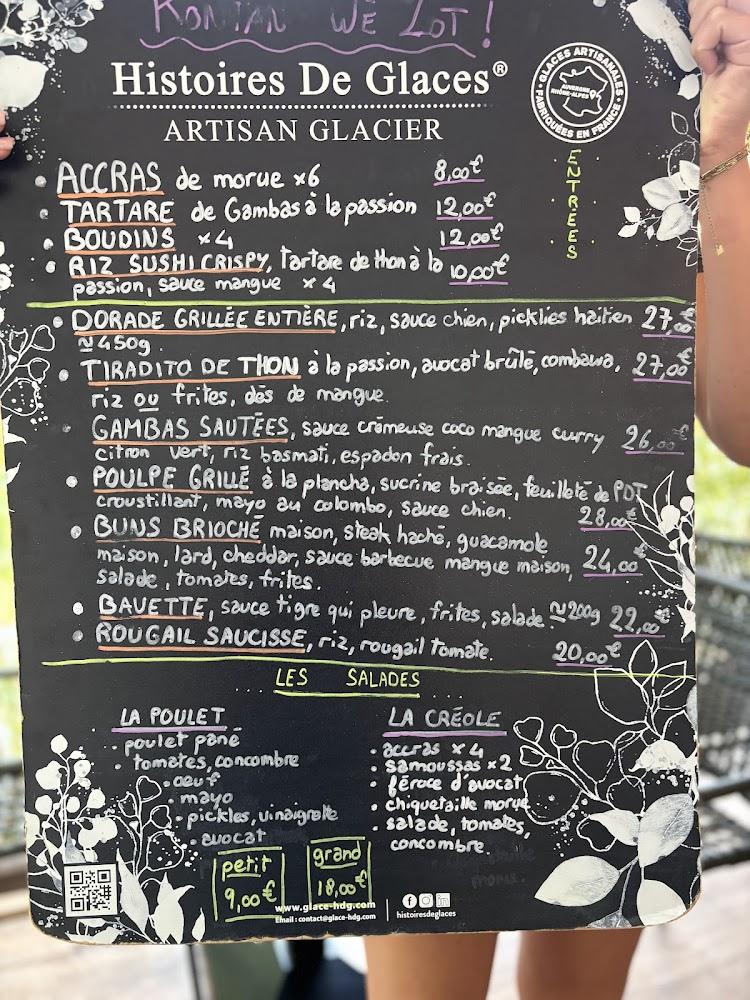 KONTAN WÈ ZOT !
Histoires De Glaces®
ARTISAN GLACIER
GLACES ARTISANALES
AUVERGNE
RHÔNE-ALPES
FABRIQUÉES EN FRANCE
ENTRÉES
ACCRAS de morue x6 8,00€
TARTARE de Gambas à la passion 12,00€
BOUDINS x4 12,00€
RIZ SUSHI CRISPY, tartare de thon à la 10,00€
passion, sauce mangue x 4
DORADE GRILLÉE ENTIÈRE, riz, sauce chien, picklies haïtien 27,00€
≈450g
TIRADITO DE THON à la passion, avocat brûlé, combawa, 27,00€
riz ou frites, dés de mangue.
GAMBAS SAUTÉES, sauce crémeuse coco mangue curry 26,00€
citron vert, riz basmati, espadon frais.
POULPE GRILLÉ à la plancha, sucrine braisée, feuilleté de PDT
croustillant, mayo au colombo, sauce chien. 28,00€
BUNS BRIOCHÉ maison, steak haché, guacamole
maison, lard, cheddar, sauce barbecue mangue maison, 24,00€
salade, tomates, frites.
BAVETTE, sauce tigre qui pleure, frites, salade ≈200g 22,00€
ROUGAIL SAUCISSE, riz, rougail tomate. 20,00€
LES SALADES
LA POULET
poulet pané
tomates, concombre
oeuf
mayo
pickles, vinaigrette
avocat
petit
9,00€
grand
18,00€
LA CRÉOLE
accras x 4
samoussas x 2
féroce d'avocat
chiquetaille morue
salade, tomates,
concombre
www.glace-hdg.com
Email : contact@glace-hdg.com
histoiresdeglaces